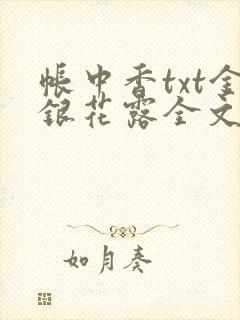 帳中香txt金
銀花露全文
如月奏